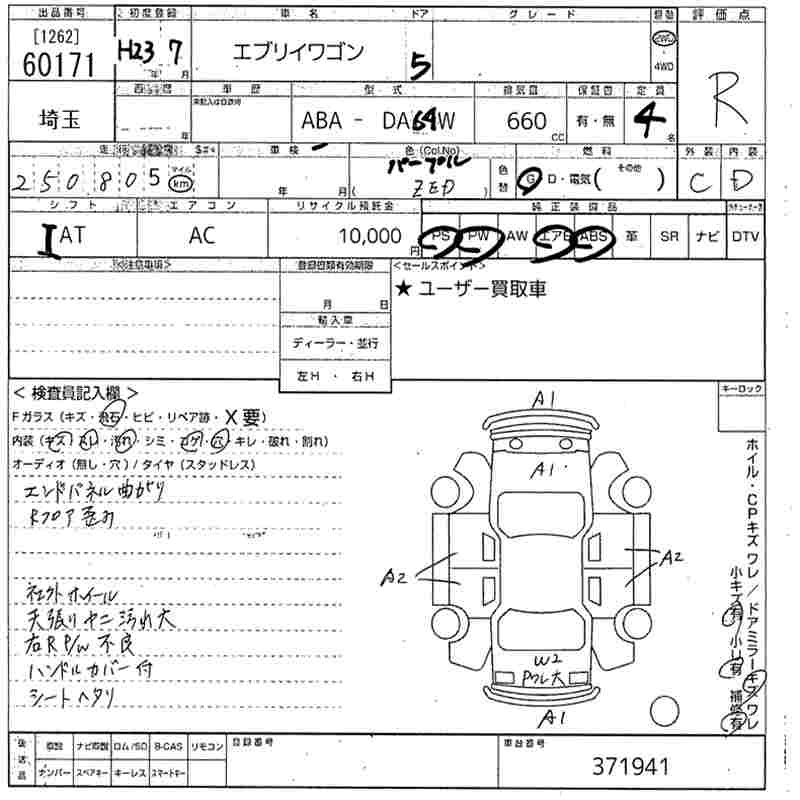 出品番号 初度登録 車名 ドア グレード 評価点
[1262]
60171 H23 年 7 月 エブリイワゴン 5 2WD 4WD R
車歴 型式 排気量 保証書 定員
埼玉 年 ABA - DA64W 660 CC 有・無 4 名
走行 車検 色 (Col.No) 燃料 外装 内装
250805 マイル km 年 月 パープル ( ZED ) 色替 G D・電気 ( その他 ) C D
シフト エアコン リサイクル預託金 純正装備品
I AT AC 10,000 円 PS PW AW エアB ABS 革 SR ナビ DTV
<注意事項> 登録書類有効期限 <セールスポイント>
月 日 ★ ユーザー買取車
輸入車
ディーラー・並行
左H ・ 右H
< 検査員記入欄 > キーロック
Fガラス (キズ・飛石・ヒビ・リペア跡・X要)
内装 (キズ・スレ・汚れ・シミ・コゲ・穴・キレ・破れ・割れ)
オーディオ (無し・穴) / タイヤ (スタッドレス)
エンドパネル曲がり
Rフロア歪み
社外ホイール
天張りヤニ汚れ大
右R P/W 不良
ハンドルカバー付
シートヘタリ
A1
A1
A2 A2
W2
Pワレ大
A1
ホイル・CPキズワレ/ドアミラーキズワレ
小キズ有 小U有 補修有
後送品 取説 ナビ取説 ロム/SD B-CAS リモコン 登録番号 車台番号
ナンバー スペアキー キーレス スマートキー 371941